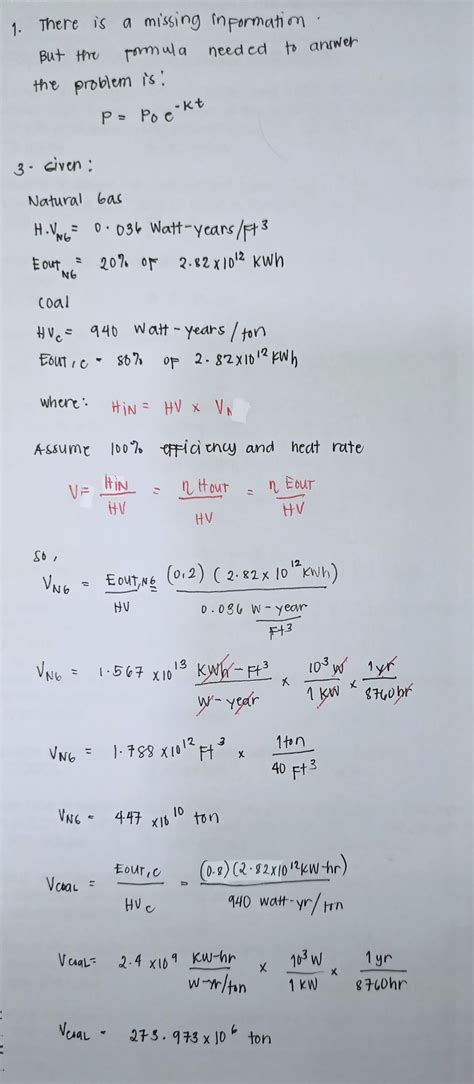 1. There is a missing information.
But the formula needed to answer
the problem is:
P = P₀ e^-Kt
3- Given:
Natural Gas
H.V_NG = 0.036 Watt-years/Ft³
Eout_NG = 20% of 2.82x10¹² KWh
Coal
HV_c = 940 Watt-years/ton
Eout,c = 80% of 2.82x10¹² KWh
where: H_iN = HV x V
Assume 100% efficiency and heat rate
V = H_iN / HV = η Hout / HV = η Eout / HV
So,
V_NG = Eout,NG / HV (0.2) (2.82 x 10¹² KWh) / 0.036 W-year / Ft³
V_NG = 1.567 x10¹³ KWh-Ft³ / W-year x 10³ W / 1 KW x 1yr / 8760hr
V_NG = 1.788 x10¹² Ft³ x 1ton / 40 Ft³
V_NG = 4.47 x10¹⁰ ton
V_coal = Eout,c / HV_c = (0.8)(2.82x10¹²KW-hr) / 940 watt-yr/ton
V_coal = 2.4 x10⁹ KW-hr / W-yr/ton x 10³ W / 1 KW x 1yr / 8760hr
V_coal = 273.973 x 10⁶ ton